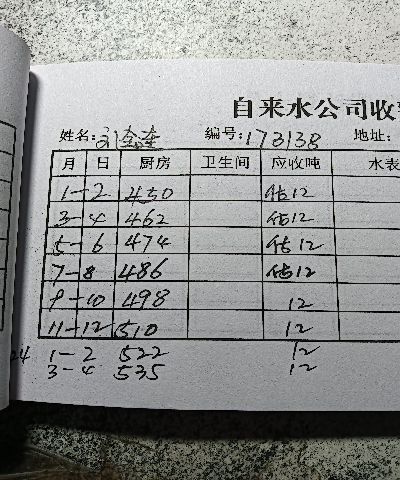 自来水公司收
姓名: 刘 编号: 173138 地址:
月 日 厨房 卫生间 应收吨 水表
1-2 450 估12
3-4 462 估12
5-6 474 估12
7-8 486 估12
9-10 498 12
11-12 510 12
24 1-2 522 12
3-4 535 12